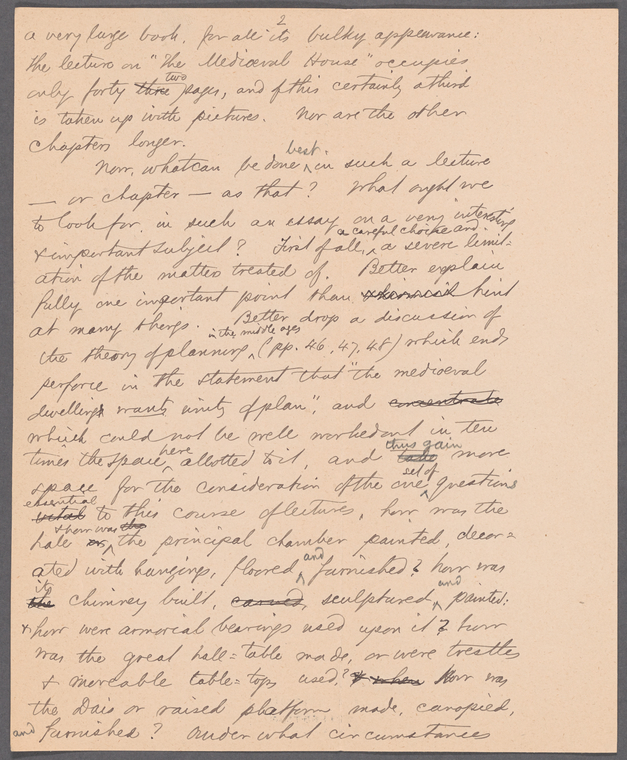 2
a very large book, for all its bulky appearance:
the lecture on "The Mediæval House" occupies
only forty three two pages, and of this certainly a third
is taken up with pictures. Nor are the other
chapters longer.
Now, what can be done best, in such a lecture
— or chapter — as that? What ought we
to look for in such an essay on a very interesting
& important subject? First of all, a careful choice and a severe limit=
ation of the matter treated of. Better explain
fully one important point than hint
at many things. Better drop a discussion of
the theory of planning in the middle ages (pp. 46, 47, 48) which ends
perforce in the statement that "the mediæval
dwellings wants unity of plan", and concentrate
which could not be well worked out in ten
times the space here allotted to it, and thus gain take more
space for the consideration of the one set of questions
essential vital to this course of lectures, how was the
hall or & how was the the principal chamber painted, decor=
ated with hangings, floored and furnished? how was
its the chimney built, carved, sculptured and painted:
& how were armorial bearings used upon it? how
was the great hall=table made, or were trestles
& moveable table=tops used? & when How was
the Dais or raised platform made, canopied,
and furnished? Under what circumstances